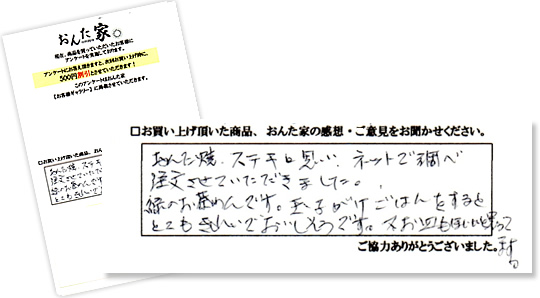 おんた家。
現在、商品を買っていただいたお客様に
アンケートを実施しております。
アンケートにお答え頂きますと、次回お買い上げ時に、
500円割引とさせていただきます!
このアンケートはおんた家
【お客様ギャラリー】に掲載させていただきます。
□お買い上げ頂いた商品、おん
おんた焼、ステキ
注文させていただき
緑のお茶わんです
とてもきれいで
□お買い上げ頂いた商品、おんた家の感想・ご意見をお聞かせください。
おんた焼、ステキと思い、ネットで調べ
注文させていただきました。
緑のお茶わんです。玉子がけごはんをすると
とてもきれいでおいしそうです。又お皿もほしいと思って
ます
ご協力ありがとうございました。